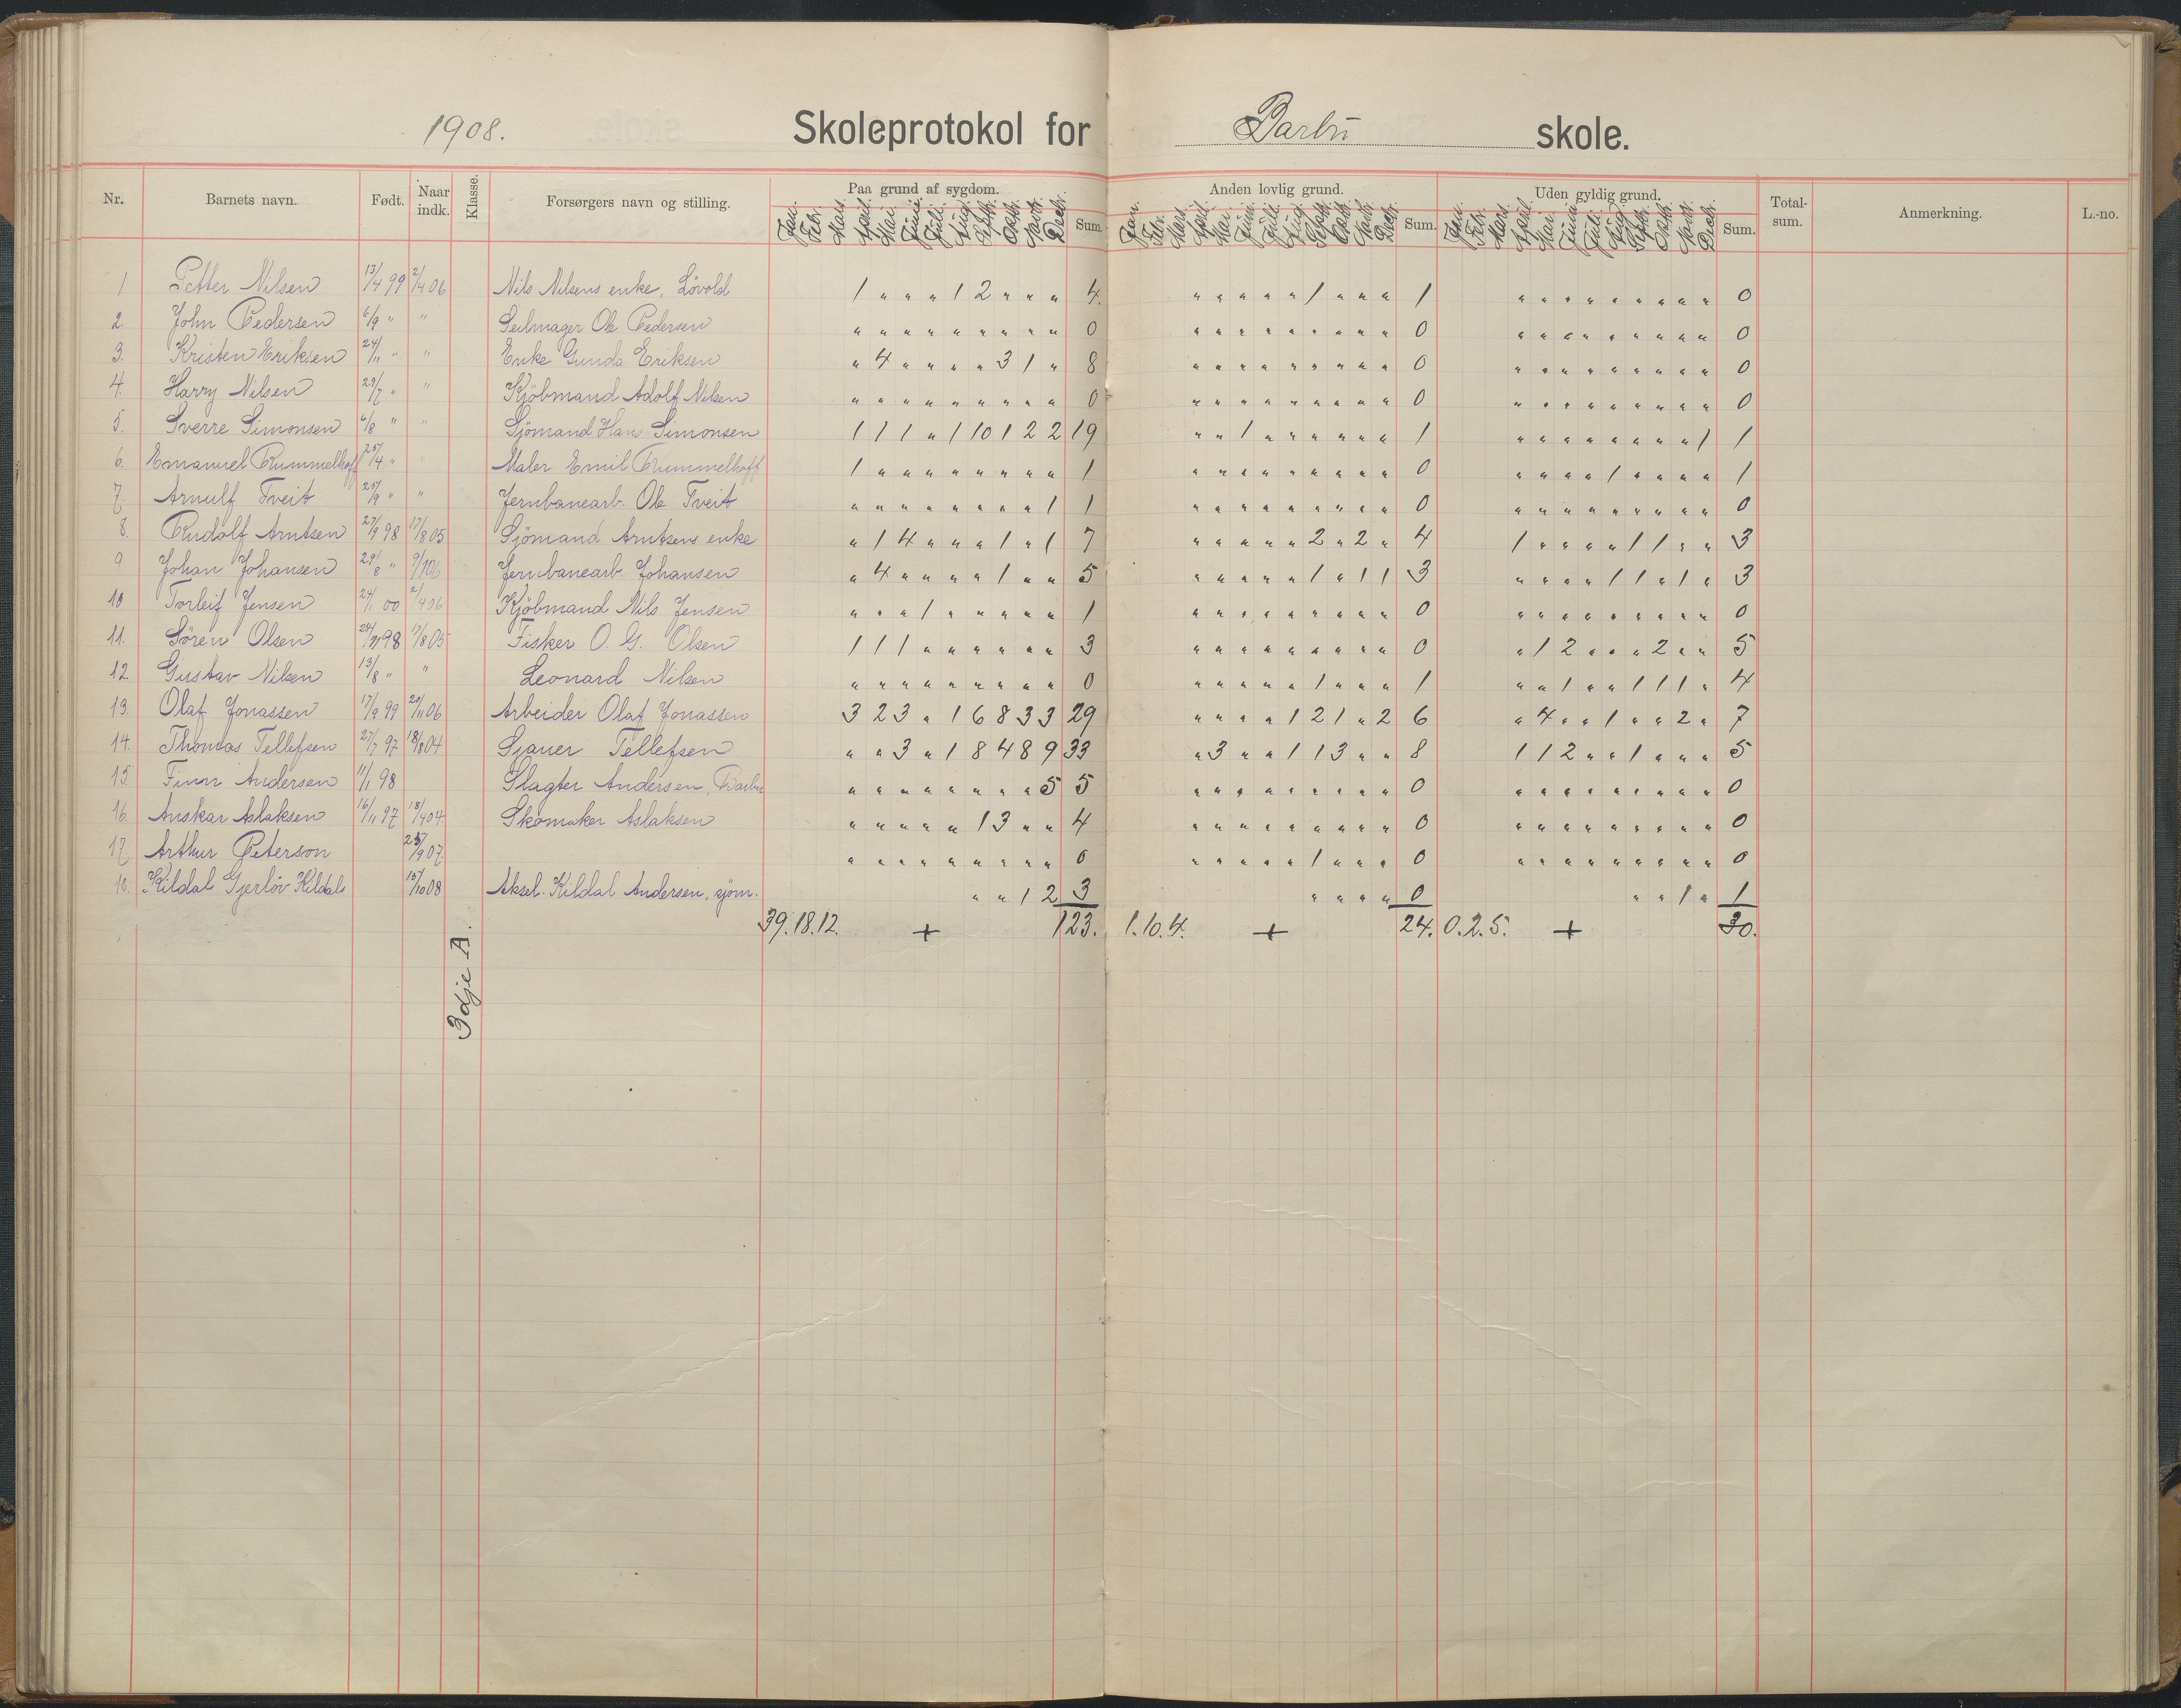 1908. Skoleprotokol for Barbu skole.
Nr. Barnets navn. Født. Naar indk. Klasse. Forsørgers navn og stilling. Paa grund af sygdom. Sum. Anden lovlig grund. Sum. Uden gyldig grund. Sum. Total-sum. Anmerkning. L.-no.
Jan. Febr. Mars April. Mai. Juni. Juli. Aug. Septb. Oktb. Novb. Decb. Jan. Febr. Mars. April. Mai. Juni. Juli. Aug. Septb. Oktb. Novb. Decb. Jan. Febr. Mars. April. Mai. Juni. Juli. Aug. Septb. Oktb. Novb. Decb.
1 Petter Nilsen 13/4 99 2/4 06 Nils Nilsens enke, Lövold 1 " " " 1 2 " " " 4. " " " " " 1 " " " 1 " " " " " " " " " 0
2 John Pedersen 6/9 " " Seilmager Ole Pedersen " " " " " " " " " 0 " " " " " " " " " 0 " " " " " " " " " 0
3. Kristen Eriksen 24/11 " " Enke Gunda Eriksen " 4 " " " " 3 1 " 8 " " " " " " " " " 0 " " " " " " " " " 0
4. Harry Nilsen 29/7 " " Kjöbmand Adolf Nilsen " " " " " " " " " 0 " " " " " " " " " 0 " " " " " " " " " 0
5. Sverre Simonsen 6/8 " " Sjömand Hans Simonsen 1 1 1 " 1 10 1 2 2 19 " " 1 " " " " " " 1 " " " " " " " " 1 1
6. Emanuel Rummelhoff 25/4 " " Maler Emil Rummelhoff 1 " " " " " " " " 1 " " " " " " " " " 0 " " " " 1 " " " " 1
7. Arnulf Tveit 25/9 " " Jernbanearb. Ole Tveit " " " " " " " " 1 1 " " " " " " " " " 0 " " " " " " " " " 0
8. Rudolf Arntsen 27/9 98 17/8 05 Sjömand Arntsens enke " 1 4 " " " 1 " 1 7 " " " " " 2 " 2 " 4 1 " " " " 1 1 " " 3
9 Johan Johansen 29/8 " 9/1 06 Jernbanearb. Johansen " 4 " " " " 1 " " 5 " " " " " 1 " 1 1 3 " " " " 1 1 " 1 " 3
10 Torleif Jensen 24/1 00 2/4 06 Kjöbmand Nils Jensen " " " 1 " " " " " 1 " " " " " " " " " 0 " " " " " " " " " 0
11. Sören Olsen 24/11 98 17/8 05 Fisker O. G. Olsen 1 1 1 " " " " " " 3 " " " " " " " " " 0 " 1 2 " " " 2 " " 5
12. Gustav Nilsen 13/8 " " Leonard Nilsen " " " " " " " " " 0 " " " " " 1 " " " 1 " " 1 " " 1 1 1 " 4
13. Olaf Jonassen 17/9 99 20/11 06 Arbeider Olaf Jonassen 3 2 3 " 1 6 8 3 3 29 " " " " 1 2 1 " 2 6 " 4 " " 1 " " 2 " 7
14. Thomas Tellefsen 27/7 97 18/8 04 Sjauer Tellefsen " " 3 " 1 8 4 8 9 33 " 3 " " 1 1 3 " " 8 1 1 2 " " 1 " " " 5
15. Finn Andersen 11/1 98 Slagter Andersen, Barbu " " " " " " " " 5 5 " " " " " " " " " 0 " " " " " " " " " 0
16. Anskar Aslaksen 16/11 97 18/4 04 Skomaker Aslaksen " " " " " 1 3 " " 4 " " " " " " " " " 0 " " " " " " " " " 0
17. Arthur Peterson 23/9 07 " " " " " " " " " 0 " " " " " 1 " " " 0 " " " " " " " " " 0
18. Kildal Gjerlöv Kildal 15/10 08 Aksel Kildal Andersen, sjöm. " " 1 2 3 " " " " 0 " " 1 " 1
39. 18. 12. + 123. 1. 10. 4. + 24. 0. 2. 5. + 30.
3dje A.